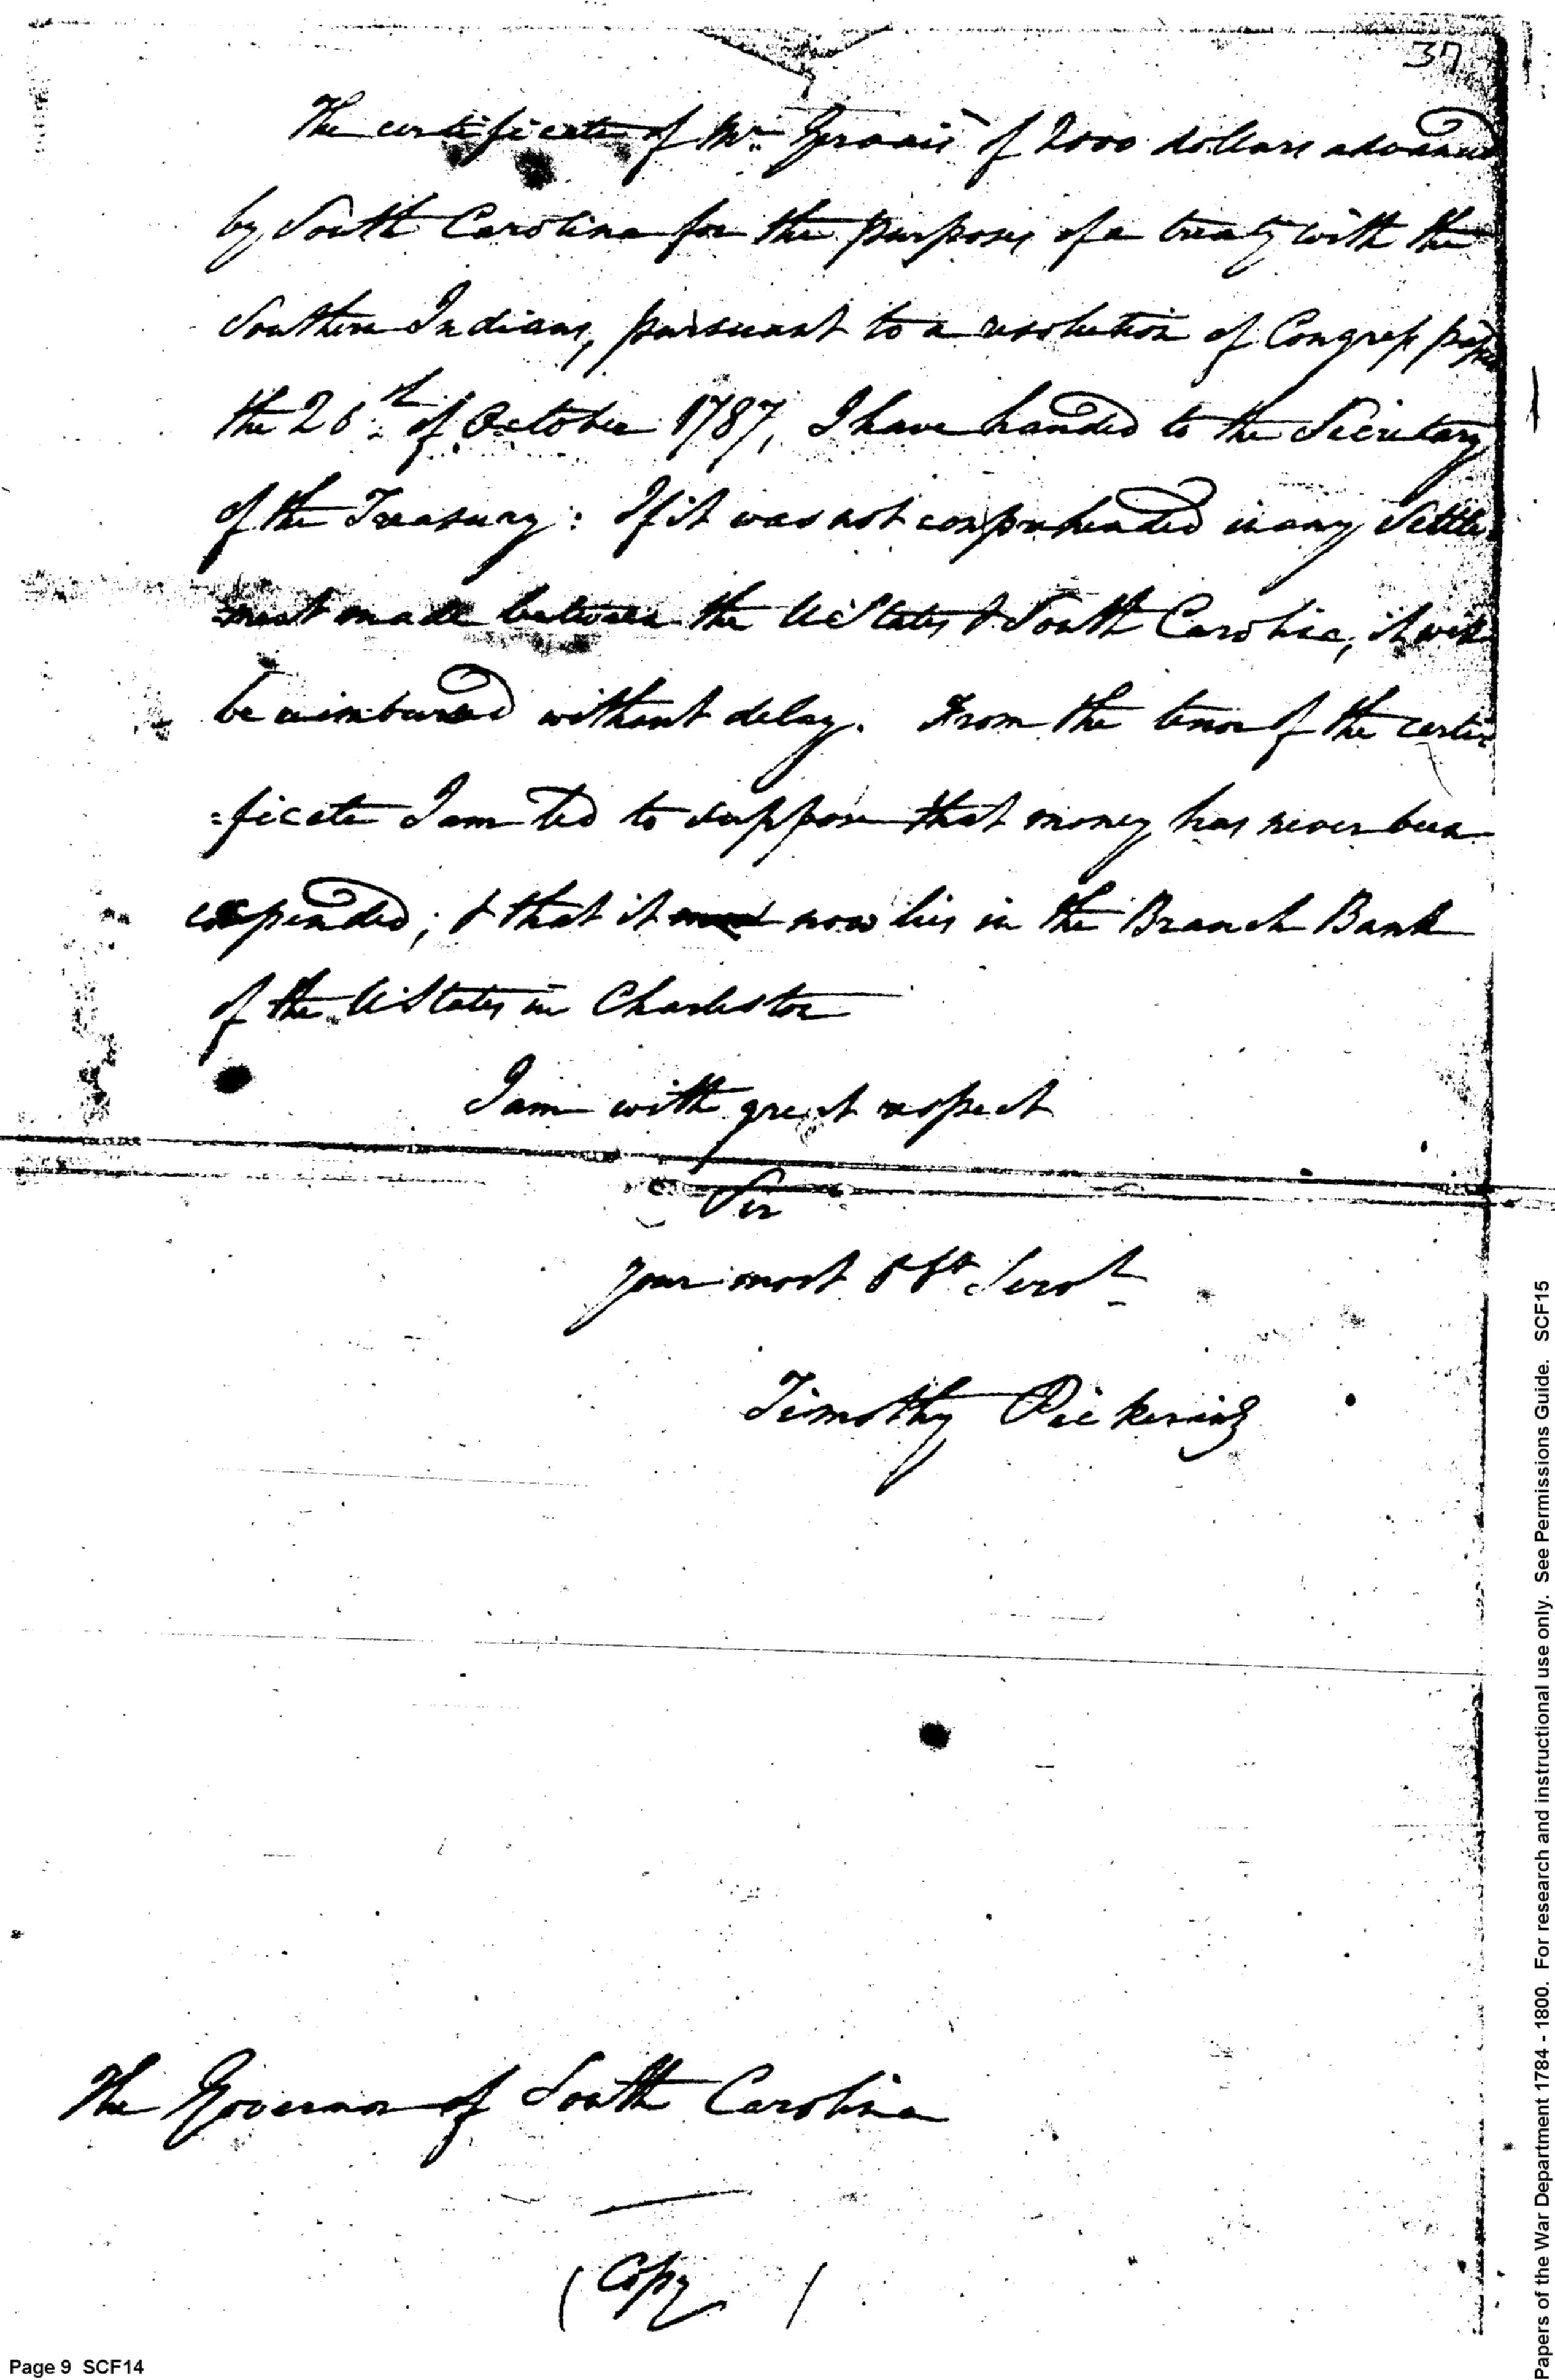 37
The certificate of Mr. Gervais of 2000 dollars advanced
by South Carolina for the purposes of a treaty with the
Southern Indians, pursuant to a resolution of Congress passed
the 26th of October 1787, I have handed to the Secretary
of the Treasury: If it was not comprehended in any Settle
ment made between the UStates & South Carolina, it will
be reimbursed without delay. From the tenor of the certi
=ficate I am led to suppose that money has never been
expended; & that it now lies in the Branch Bank
of the UStates in Charleston
I am with great respect
Sir
your most obt Servt
Timothy Pickering
The Governor of South Carolina
(Copy)
Page 9 SCF14
Papers of the War Department 1784 - 1800. For research and instructional use only. See Permissions Guide. SCF15